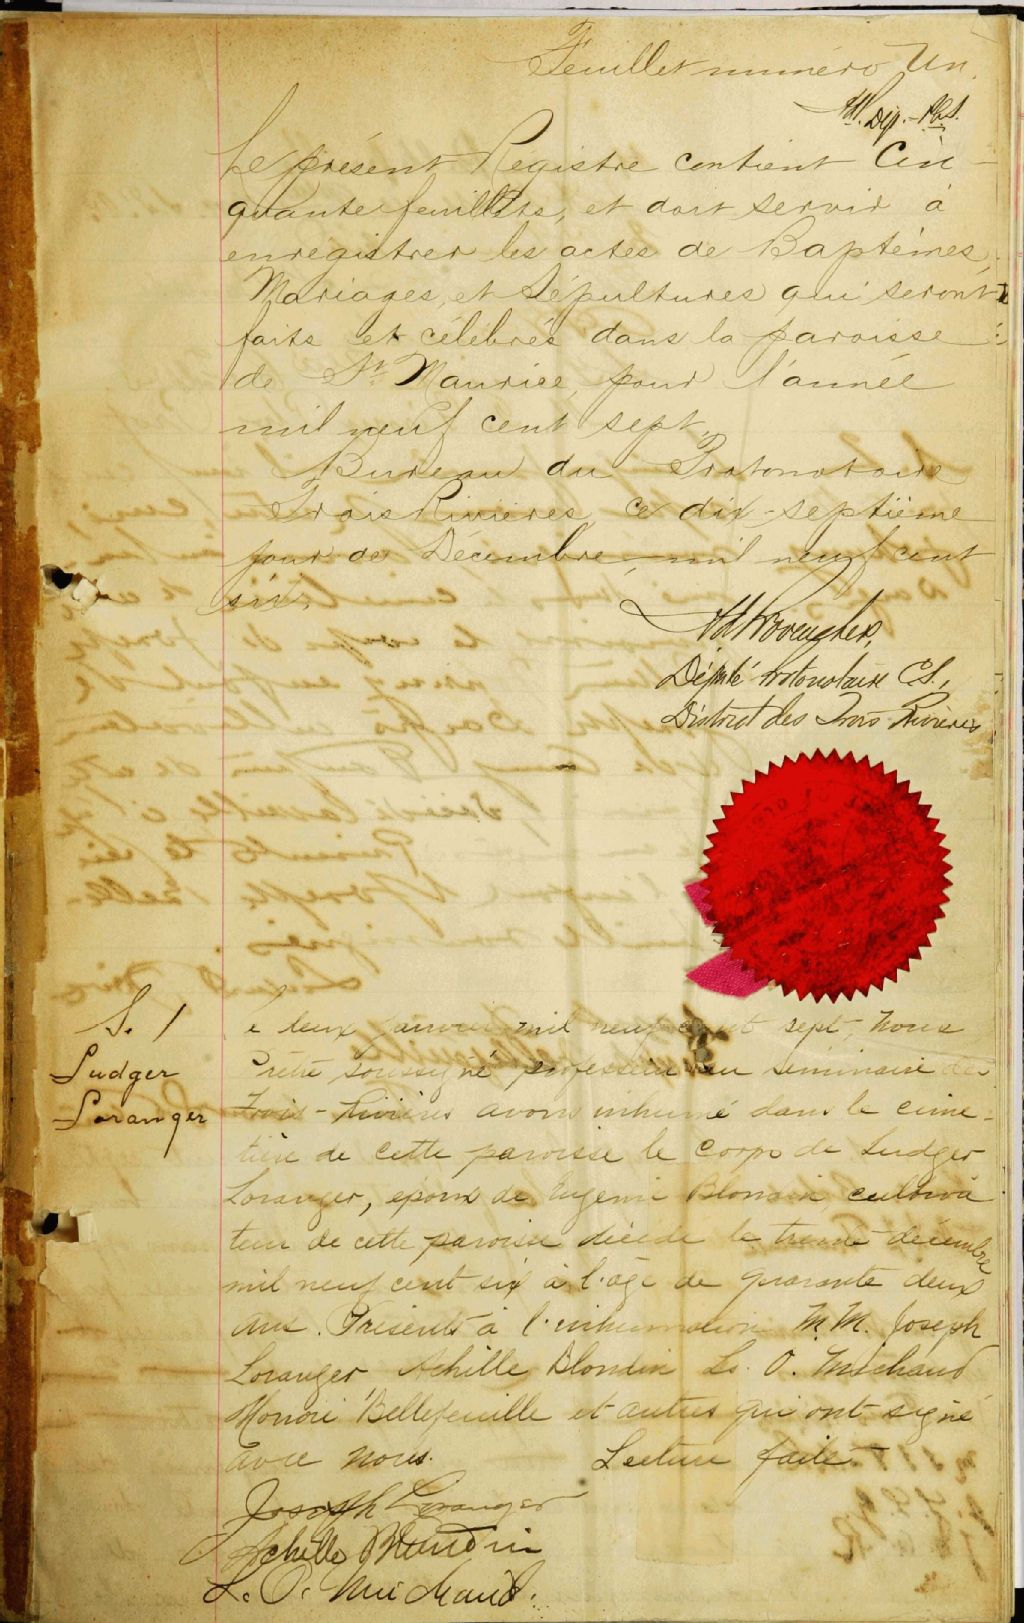 Feuillet numéro Un.
Dép. P.C.S.
Le présent Registre contient Cin-
quante feuillets, et doit servir à
enregistrer les actes de Baptêmes,
Mariages, et Sépultures qui seront
faits et célébrés dans la paroisse
de St Maurice, pour l'année
mil neuf cent sept.
Bureau du Protonotaire
Trois Rivières, ce dix-septième
jour de Décembre, mil neuf cent
six.
Provencher,
Député Protonotaire C.S.,
District des Trois Rivières
S. 1
Ludger
Loranger
Le deux janvier mil neuf cent sept, nous
Prêtre soussigné professeur au séminaire des
Trois-Rivières avons inhumé dans le cime-
tière de cette paroisse le corps de Ludger
Loranger, époux de Eugénie Blondin, cultiva
teur de cette paroisse décédé le trente décembre
mil neuf cent six à l'âge de quarante deux
ans. Présents à l'inhumation M.M. Joseph
Loranger Achille Blondin Ls. O. Michaud
Honoré Bellefeuille et autres qui ont signé
avec nous. Lecture faite.
Joseph Loranger
Achille Blondin
L. O. Michaud.